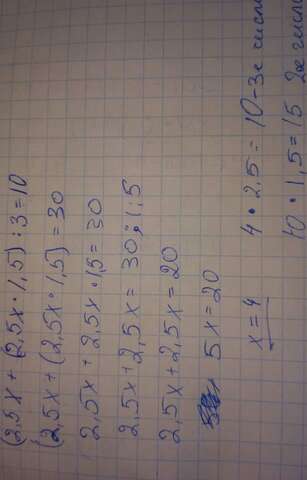 (2,5x + (2,5x · 1,5) : 3 = 10
(2,5x + (2,5x · 1,5) = 30
2,5x + 2,5x · 1,5 = 30
2,5x + 2,5x = 30 : 1,5
2,5x + 2,5x = 20
5x = 20
x = 4 4 · 2,5 = 10 - 3е число
10 · 1,5 = 15 2ое число